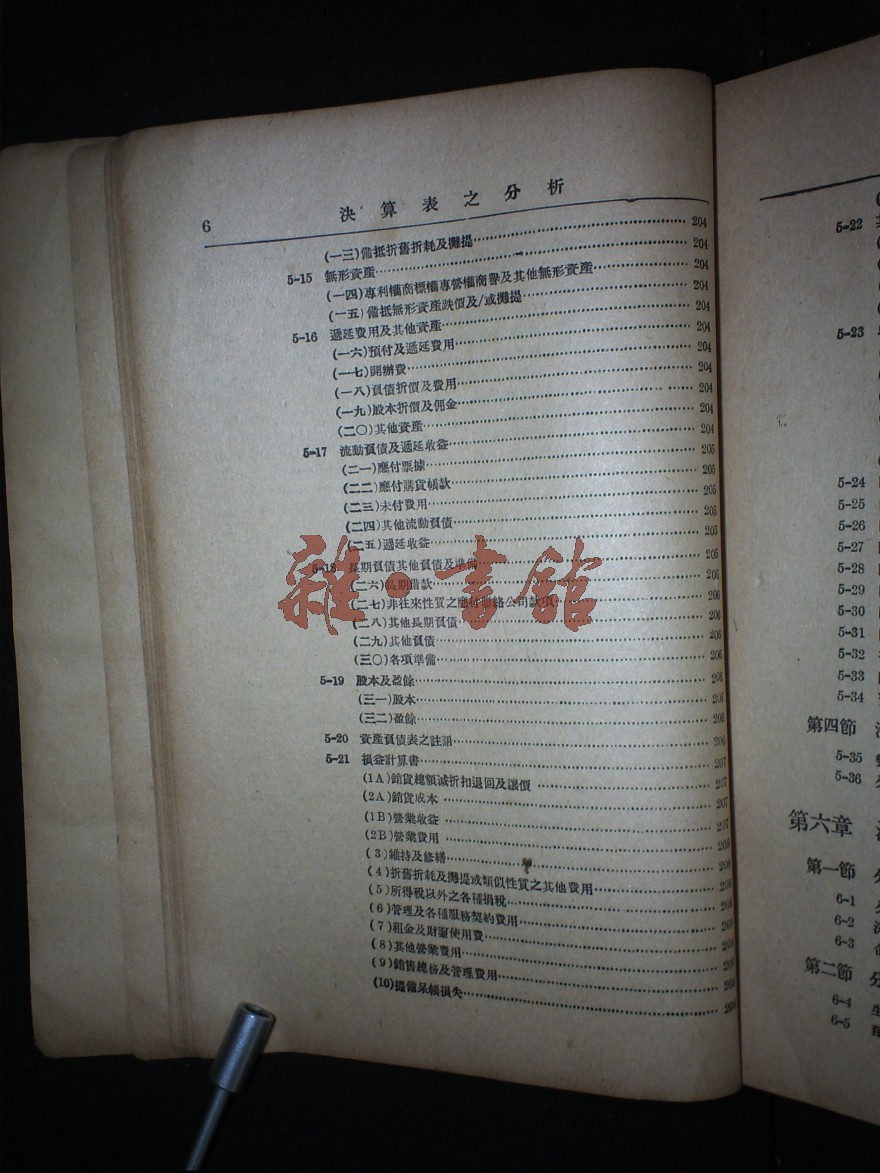 6
決算表之分析
(一三)備抵折舊折耗及攤提 204
5-15 無形資產 204
(一四)專利權商標權專營權商譽及其他無形資產 204
(一五)備抵無形資產跌價及/或攤提 204
5-16 遞延費用及其他資產 204
(一六)預付及遞延費用 204
(一七)開辦費 204
(一八)負債折價及費用 204
(一九)股本折價及佣金 204
(二〇)其他資產 204
5-17 流動負債及遞延收益 205
(二一)應付票據 205
(二二)應付購貨帳款 205
(二三)未付費用 205
(二四)其他流動負債 205
(二五)遞延收益 205
5-18 長期負債其他負債及準備 205
(二六)長期借款 205
(二七)非往來性質之應付聯絡公司款項 206
(二八)其他長期負債 206
(二九)其他負債 206
(三〇)各項準備 206
5-19 股本及盈餘 206
(三一)股本 206
(三二)盈餘 206
5-20 資產負債表之註語 206
5-21 損益計算書 207
(1A)銷貨總額減折扣退回及讓價 207
(2A)銷貨成本 207
(1B)營業收益 207
(2B)營業費用 208
(3)維持及修繕 208
(4)折舊折耗及攤提或類似性質之其他費用 208
(5)所得稅以外之各種捐稅 208
(6)管理及各種服務契約費用 208
(7)租金及財源使用費
(8)其他營業費用
(9)銷售總務及管理費用
(10)提備呆帳損失
雜·書館
5-22
5-23
5-24
5-25
5-26
5-27
5-28
5-29
5-30
5-31
5-32
5-33
5-34
第四節
5-35
5-36
第六章
第一節
6-1
6-2
6-3
第二節 分
6-4
6-5